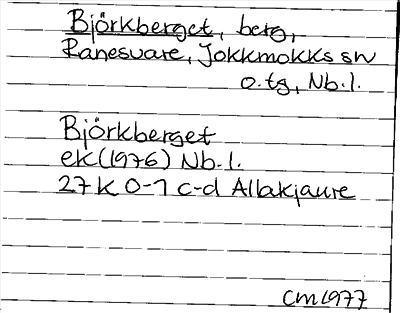 Björkberget, berg,
Ranesvare, Jokkmokks sn
o.tg, Nb.l.
Björkberget
ek(1976) Nb.l.
27K 0-1 c-d Allakjaure
CM1977